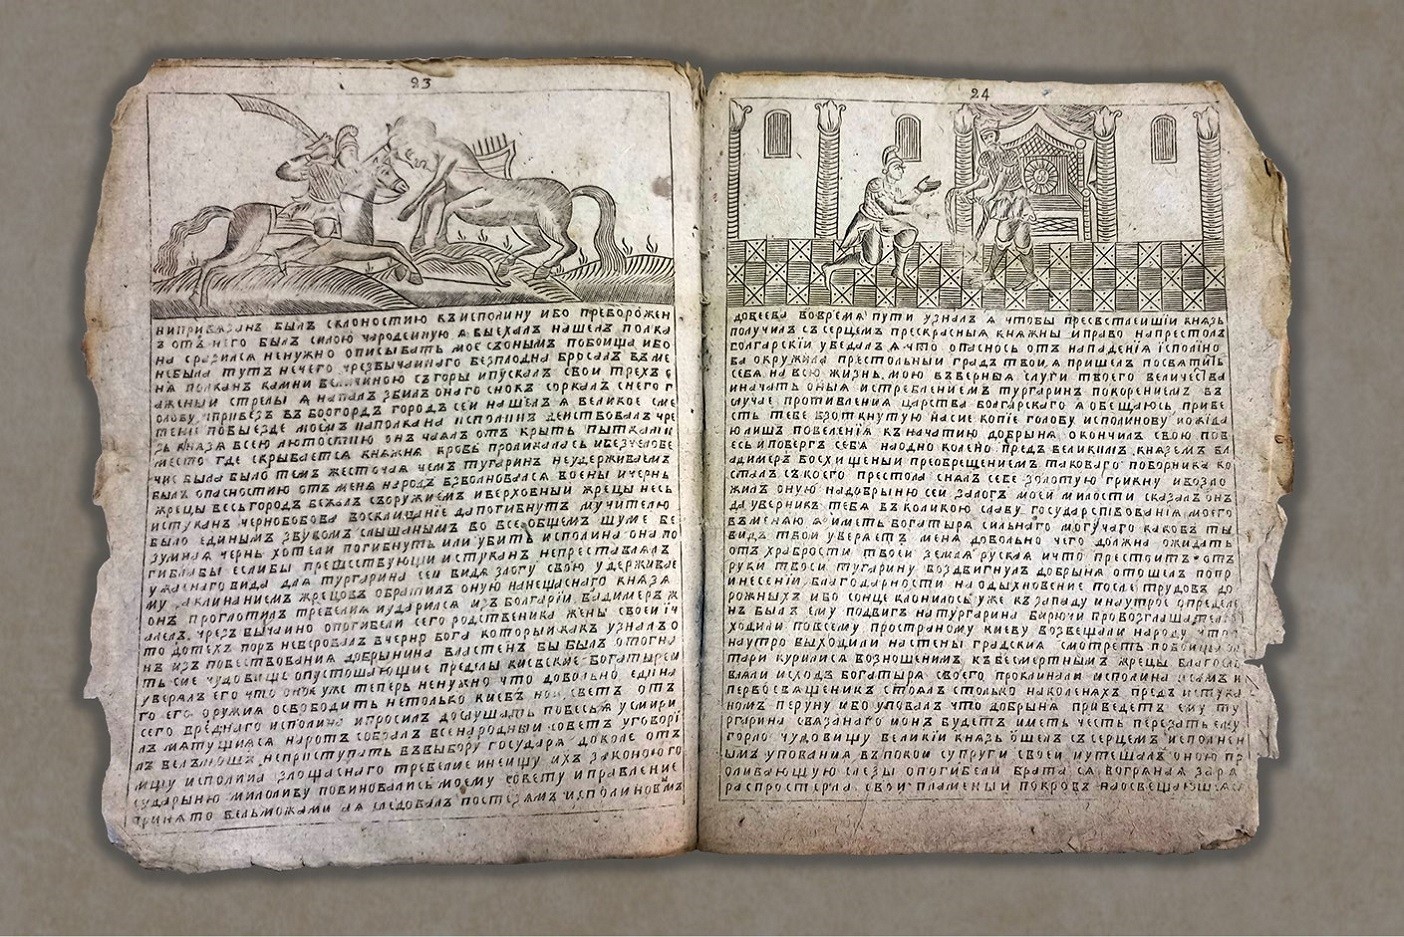 23
нипривязанъ былъ склоностию къисполину ибо преборожен
ъ отъ него былъ силою чародейную я выехалъ нашелъ полка
на сразился ненужно описывать мое сонымъ побоища ибо
небыла тутъ нечего чрезвычаинаго безплодна бросалъ въме
ня полканъ камни величиною съгоры ипускалъ свои трехъ с
аженыи стрелы я напалъ збилъ онаго снокъ сорвалъ снего г
олову ипривезъ въ боогордъ городъ сеи нашелъ я великое сме
тение повыезде моемъ наполкана исполинъ денствовалъ чре
зъ князя всею лютостию онъ чаялъ отъ крыть пытками
место где скрывается княжна кровь проливалась ибезчелове
чис была было темъ жесточая чемъ тугаринъ неудерживаемъ
былъ опасностию отъ меня народъ взволновался воены ичернь
жрецы весь городъ бежалъ съоружиемъ иверховныи жрецы несь
истуканъ чернобогова восклицание да погибнутъ мучителю
было единымъ звукомъ слышанымъ во всеобщемъ шуме бе
зумная чернь хотели погибнуть или убить исполина она по
гиблабы еслибы предшествующии истуканъ непреставлялъ
ужаснаго вида для тургарина сеи видя злогу свою удерживае
му заклинаниемъ жрецовъ обратилъ оную нанещаснаго князя
онъ проглотилъ тревелия иударился изъ болгарии вадимеръ ж
алелъ чрезвычаино опогибели сего родственика жены своеи їч
то дотехъ поръ неверовалъ вчерно бога которыи какъ узналъ о
нъ изъ повествования добрынина властенъ бы былъ отогна
ть сие чудовище опустошающие пределы киевские богатыреи
уверялъ его что оное уже теперь ненужно что довольно едина
го его оружия освободить нетолько киевъ нои светъ отъ
сего вреднаго исполина ипросилъ дослушать повесья усмири
лъ мятущияся наротъ собралъ всенародныи советъ уговорї
лъ вельможъ неприступать въвыбору государя доколе отъ
мщу исполина злощаснаго тревелие инеищу ихъ законою го
сударыню милоливу повиновались моему совету иправление
принято вельможами ая следовалъ постезямъ исполиновмъ
24
довеева вовремя пути узналъ я чтобы пресвстлеишїи князь
получилъ съсерцемъ прескрасныя княжны иправо напрестолъ
болгарскїи уведалъ я что опаснось отъ нападенїя їсполїно
ва окружила престольныи градъ твои я пришелъ посвятить
себя на всю жизнь мою въверныя слуги твоего величества
иначать оныя истреблениемъ тургаринъ покорениемъ въ
случае противления царства болгарскаго я обещаюсь приве
сть тебе взоткнутую насие копїе голову исполинову иожїда
ю лишъ повеленїя къначатию добрыня окончилъ свою пов
есь иповергъ себя наодно колено предъ великимъ княземъ вл
адимеръ восхищеныи преобрещениемъ таковаго поборника во
сталъ съкоего престола снялъ себе золотую гривну ивозло
жилъ оную надобрыню сеи залогъ моеи милости сказалъ онъ
да уверникъ тебя въколикою славу государствования моего
въменяю я иметь богатыря сильнаго могучаго каковъ ты
видъ твои уверяетъ меня довольно чего должна ожидать
отъ храбрости твоеи земля руская ичто престоитъ отъ
руки твоеи тугарину воздвигнулъ добрыня отошелъ попр
инесенїи благодарности наодыхновение после трудовъ до
рожныхъ ибо сонце клонилось уже къ западу инаутрое определе
нъ былъ ему подвигъ натургарина бирючи провозглашатели
ходили повсему пространому киеву возвещали народу чтоб
наутро выходили настены градския смотреть побоища ол
тари курилися возношенимъ къбесмертнымъ жрецы благосл
вляли исходъ богатыря своего проклинали исполина
первосвященикъ стоялъ столько наколеняхъ предъ истука
номъ перуну ибо уповалъ что добрыня приведетъ ему ту
ргарина связанаго ионъ будетъ иметь честь перезать ему
горло чудовищу великїи князь ошелъ съсерцемъ исполнен
ымъ упования въпокои супруги своеи иутешалъ оною пр
оливающую слезы опогибели брата ся вогряная заря
распростерла свои пламеныи покровъ наосвещающияся